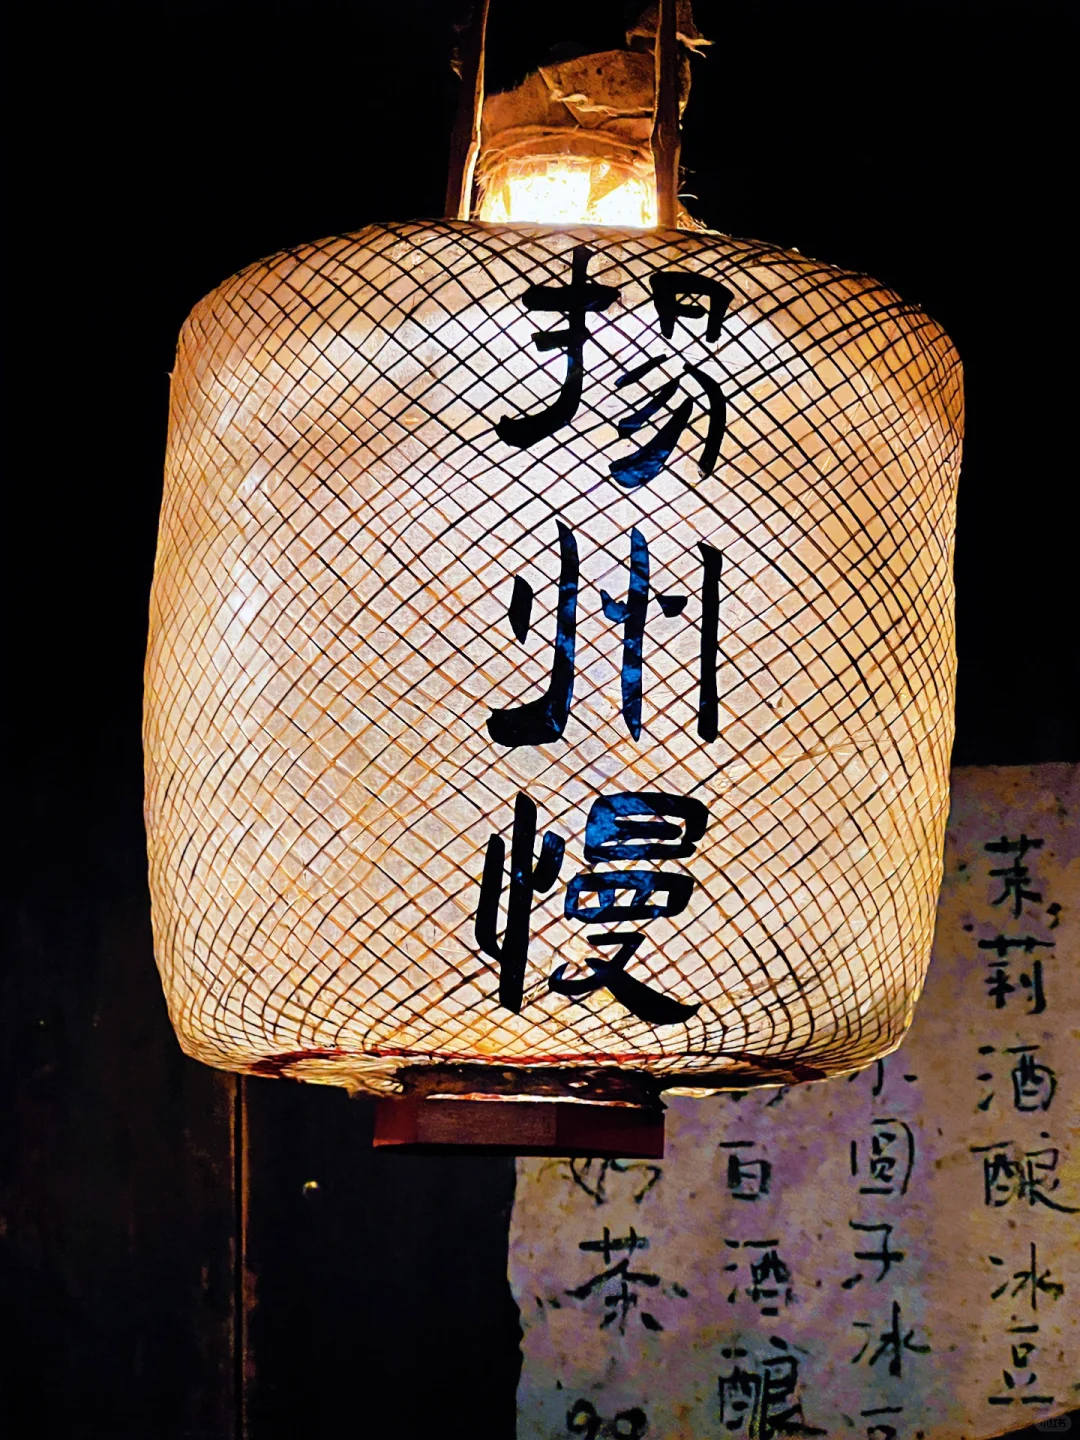 揚州慢
茉莉酒酿冰豆
小圆子冰豆
百酒酿
奶茶